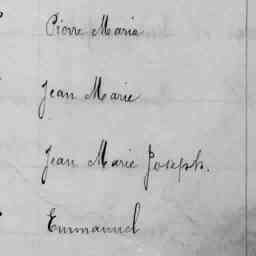 Pierre Marie
Jean Marie
Jean Marie Joseph.
Emmanuel